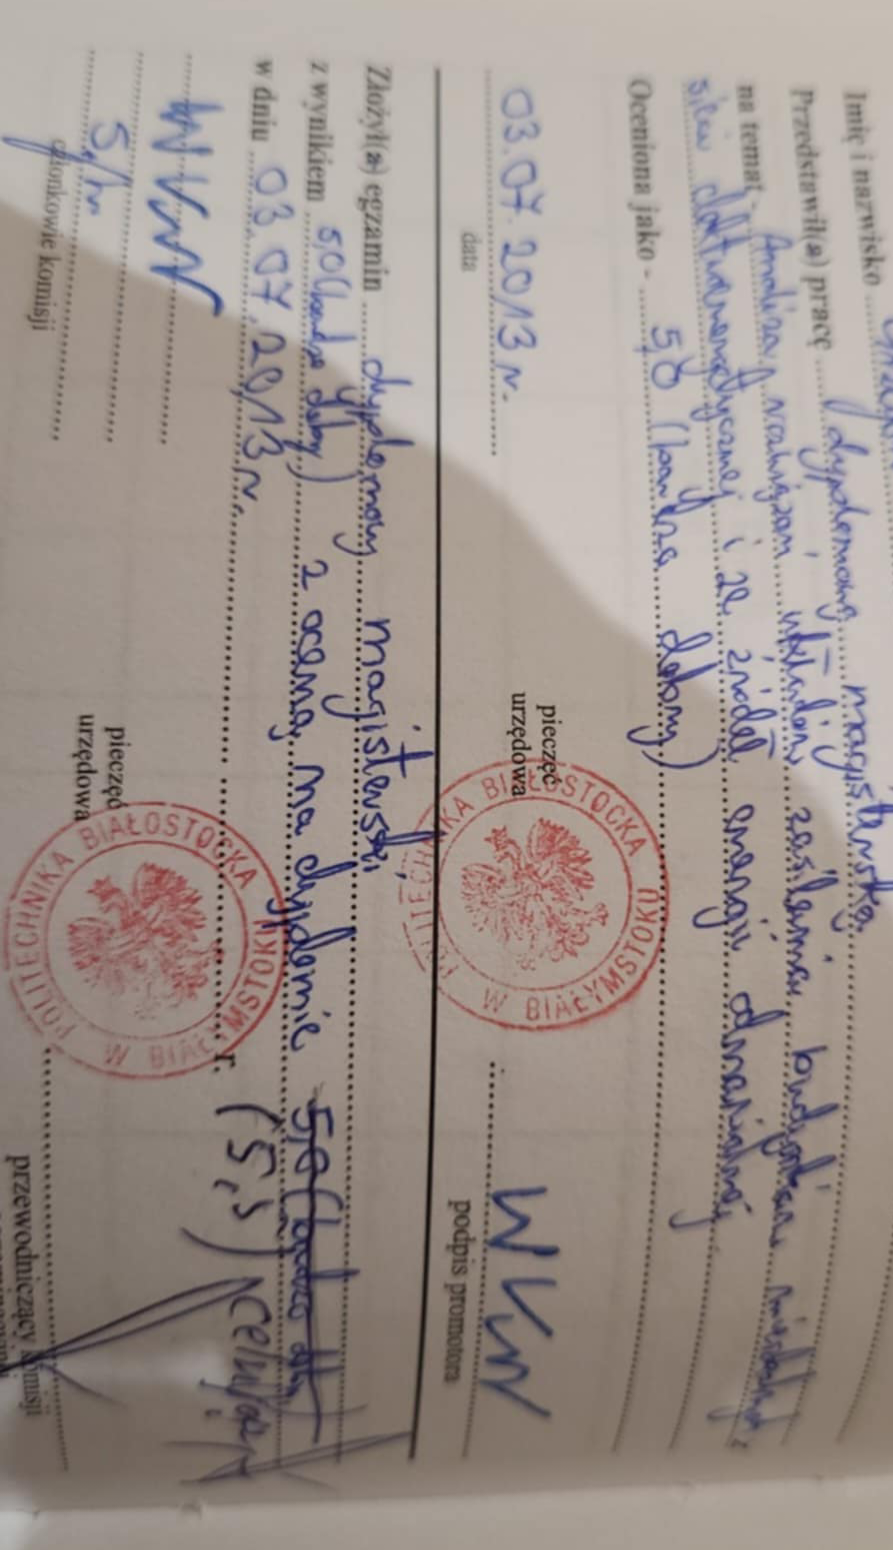 Imię i nazwisko
Przedstawił(a) pracę dyplomową magisterską
na temat - Analiza rozwiązań układów zasilania budynków mieszkalnych z
sieci elektroenergetycznej i ze źródeł energii odnawialnej
Oceniona jako - 5,0 (bardzo dobry)
03.07.2013 r.
data
pieczęć
urzędowa
podpis promotora
POLITECHNIKA BIAŁOSTOCKA W BIAŁYMSTOKU
Złożył(a) egzamin dyplomowy magisterski
z wynikiem 5,0 (bardzo dobry) z oceną na dyplomie 5,0 (bardzo dobry)
w dniu 03.07.2013 r. r. (5,5) celujący
członkowie komisji
pieczęć
urzędowa
POLITECHNIKA BIAŁOSTOCKA W BIAŁYMSTOKU
przewodniczący komisji